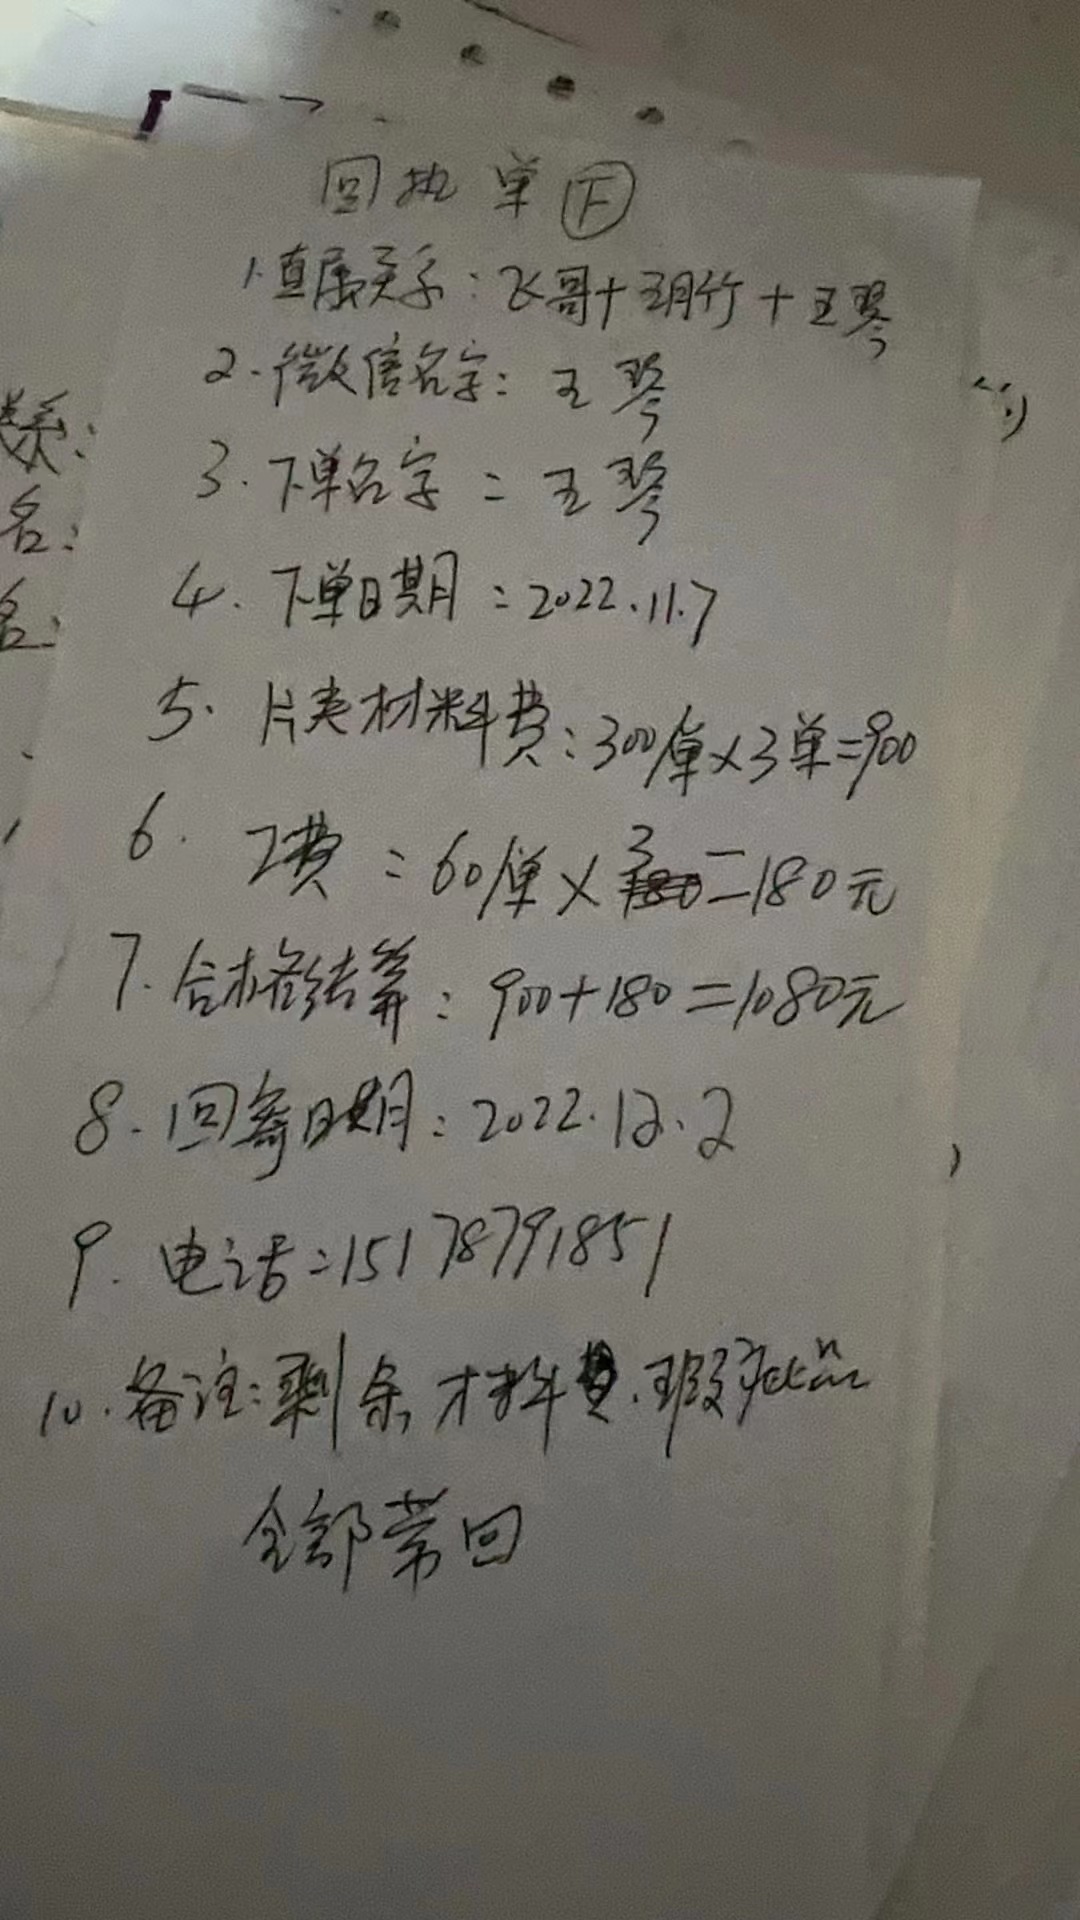 回执单 F
1.直属关系:飞哥+玥竹+王琴
2.微信名字:王琴
3.下单名字:王琴
4.下单日期:2022.11.7
5.片夹材料费:300/单×3单=900
6.工费:60/单×3=180元
7.合格结算:900+180=1080元
8.回寄日期:2022.12.2
9.电话:15178791851
10.备注:剩余材料费.瑕疵品
全部寄回
类:
名:
名: